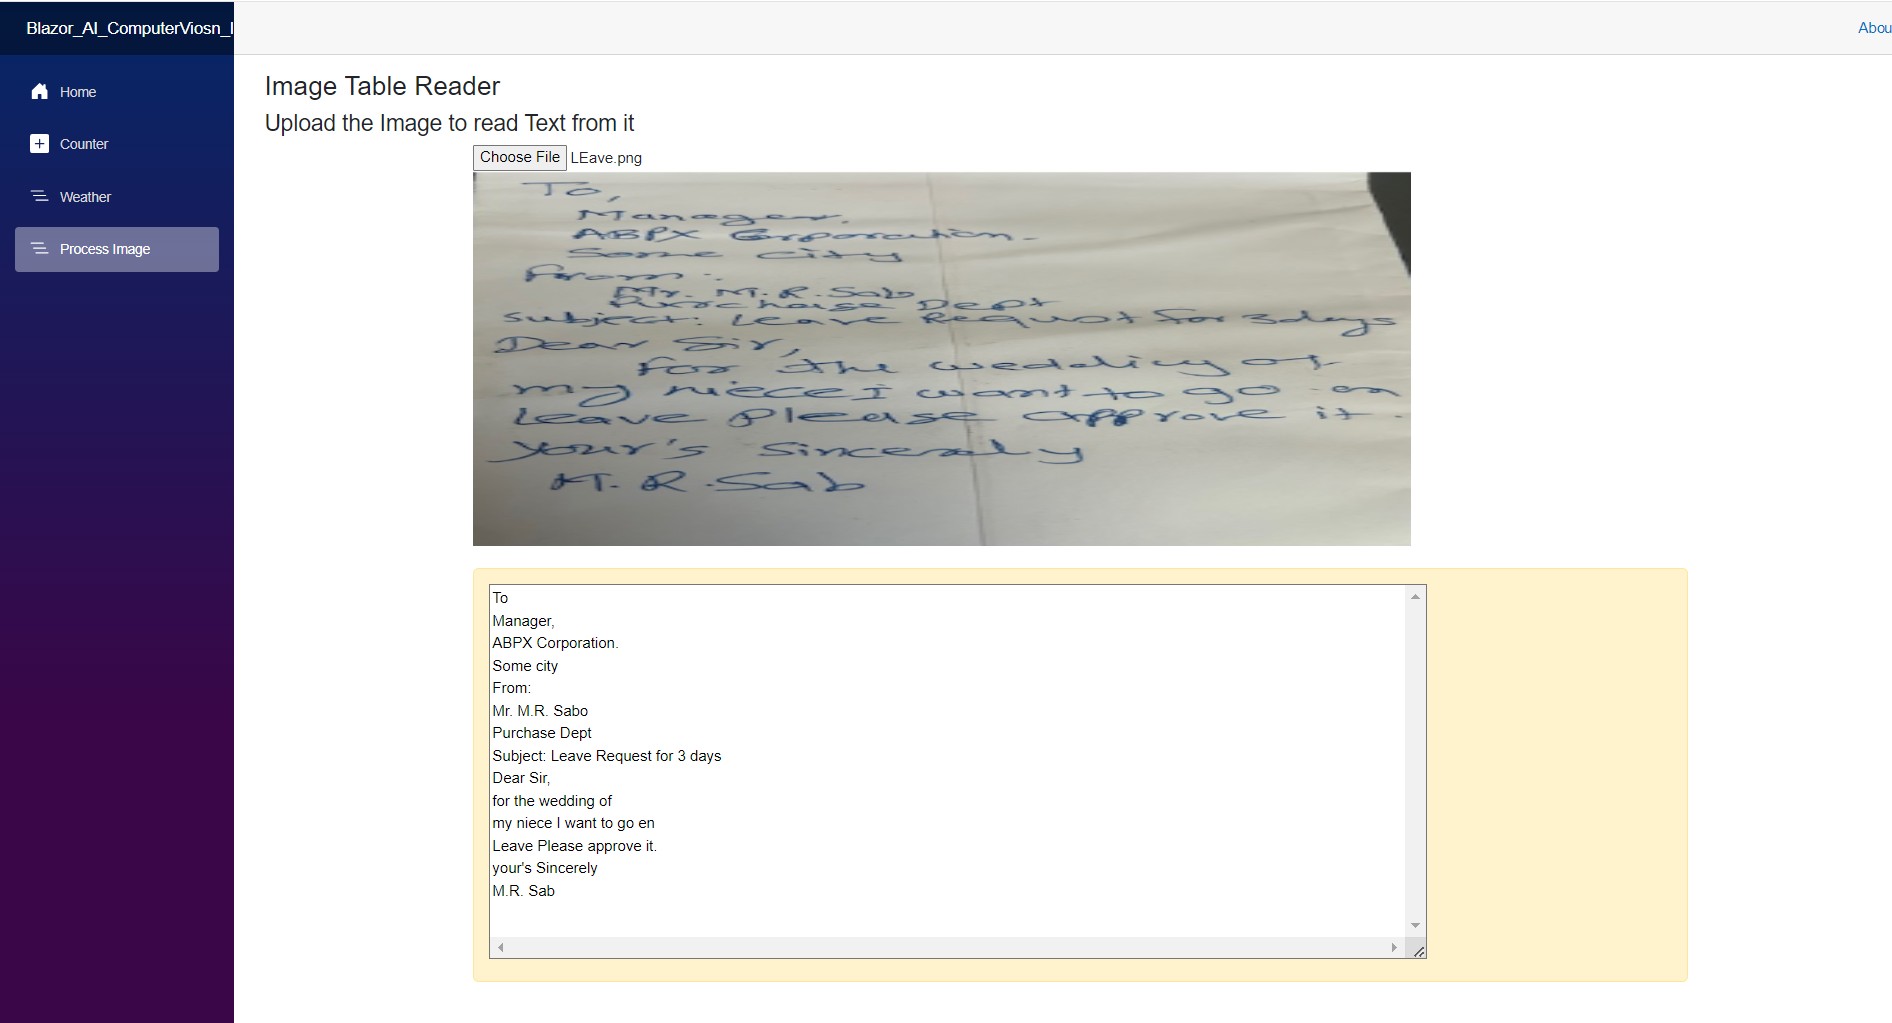 Blazor_AI_ComputerViosn_I
Abou
Home
Counter
Weather
Process Image
Image Table Reader
Upload the Image to read Text from it
Choose File LEave.png
To,
Manager,
ABPX Corporation.
Some city
From:
Mr. M.R. Sab,
Purchase Dept
Subject: Leave Request for 3 days
Dear Sir,
for the wedding of
my niece I want to go on
Leave Please approve it.
your's Sincerely
M.R. Sab
To
Manager,
ABPX Corporation.
Some city
From:
Mr. M.R. Sabo
Purchase Dept
Subject: Leave Request for 3 days
Dear Sir,
for the wedding of
my niece I want to go en
Leave Please approve it.
your's Sincerely
M.R. Sab